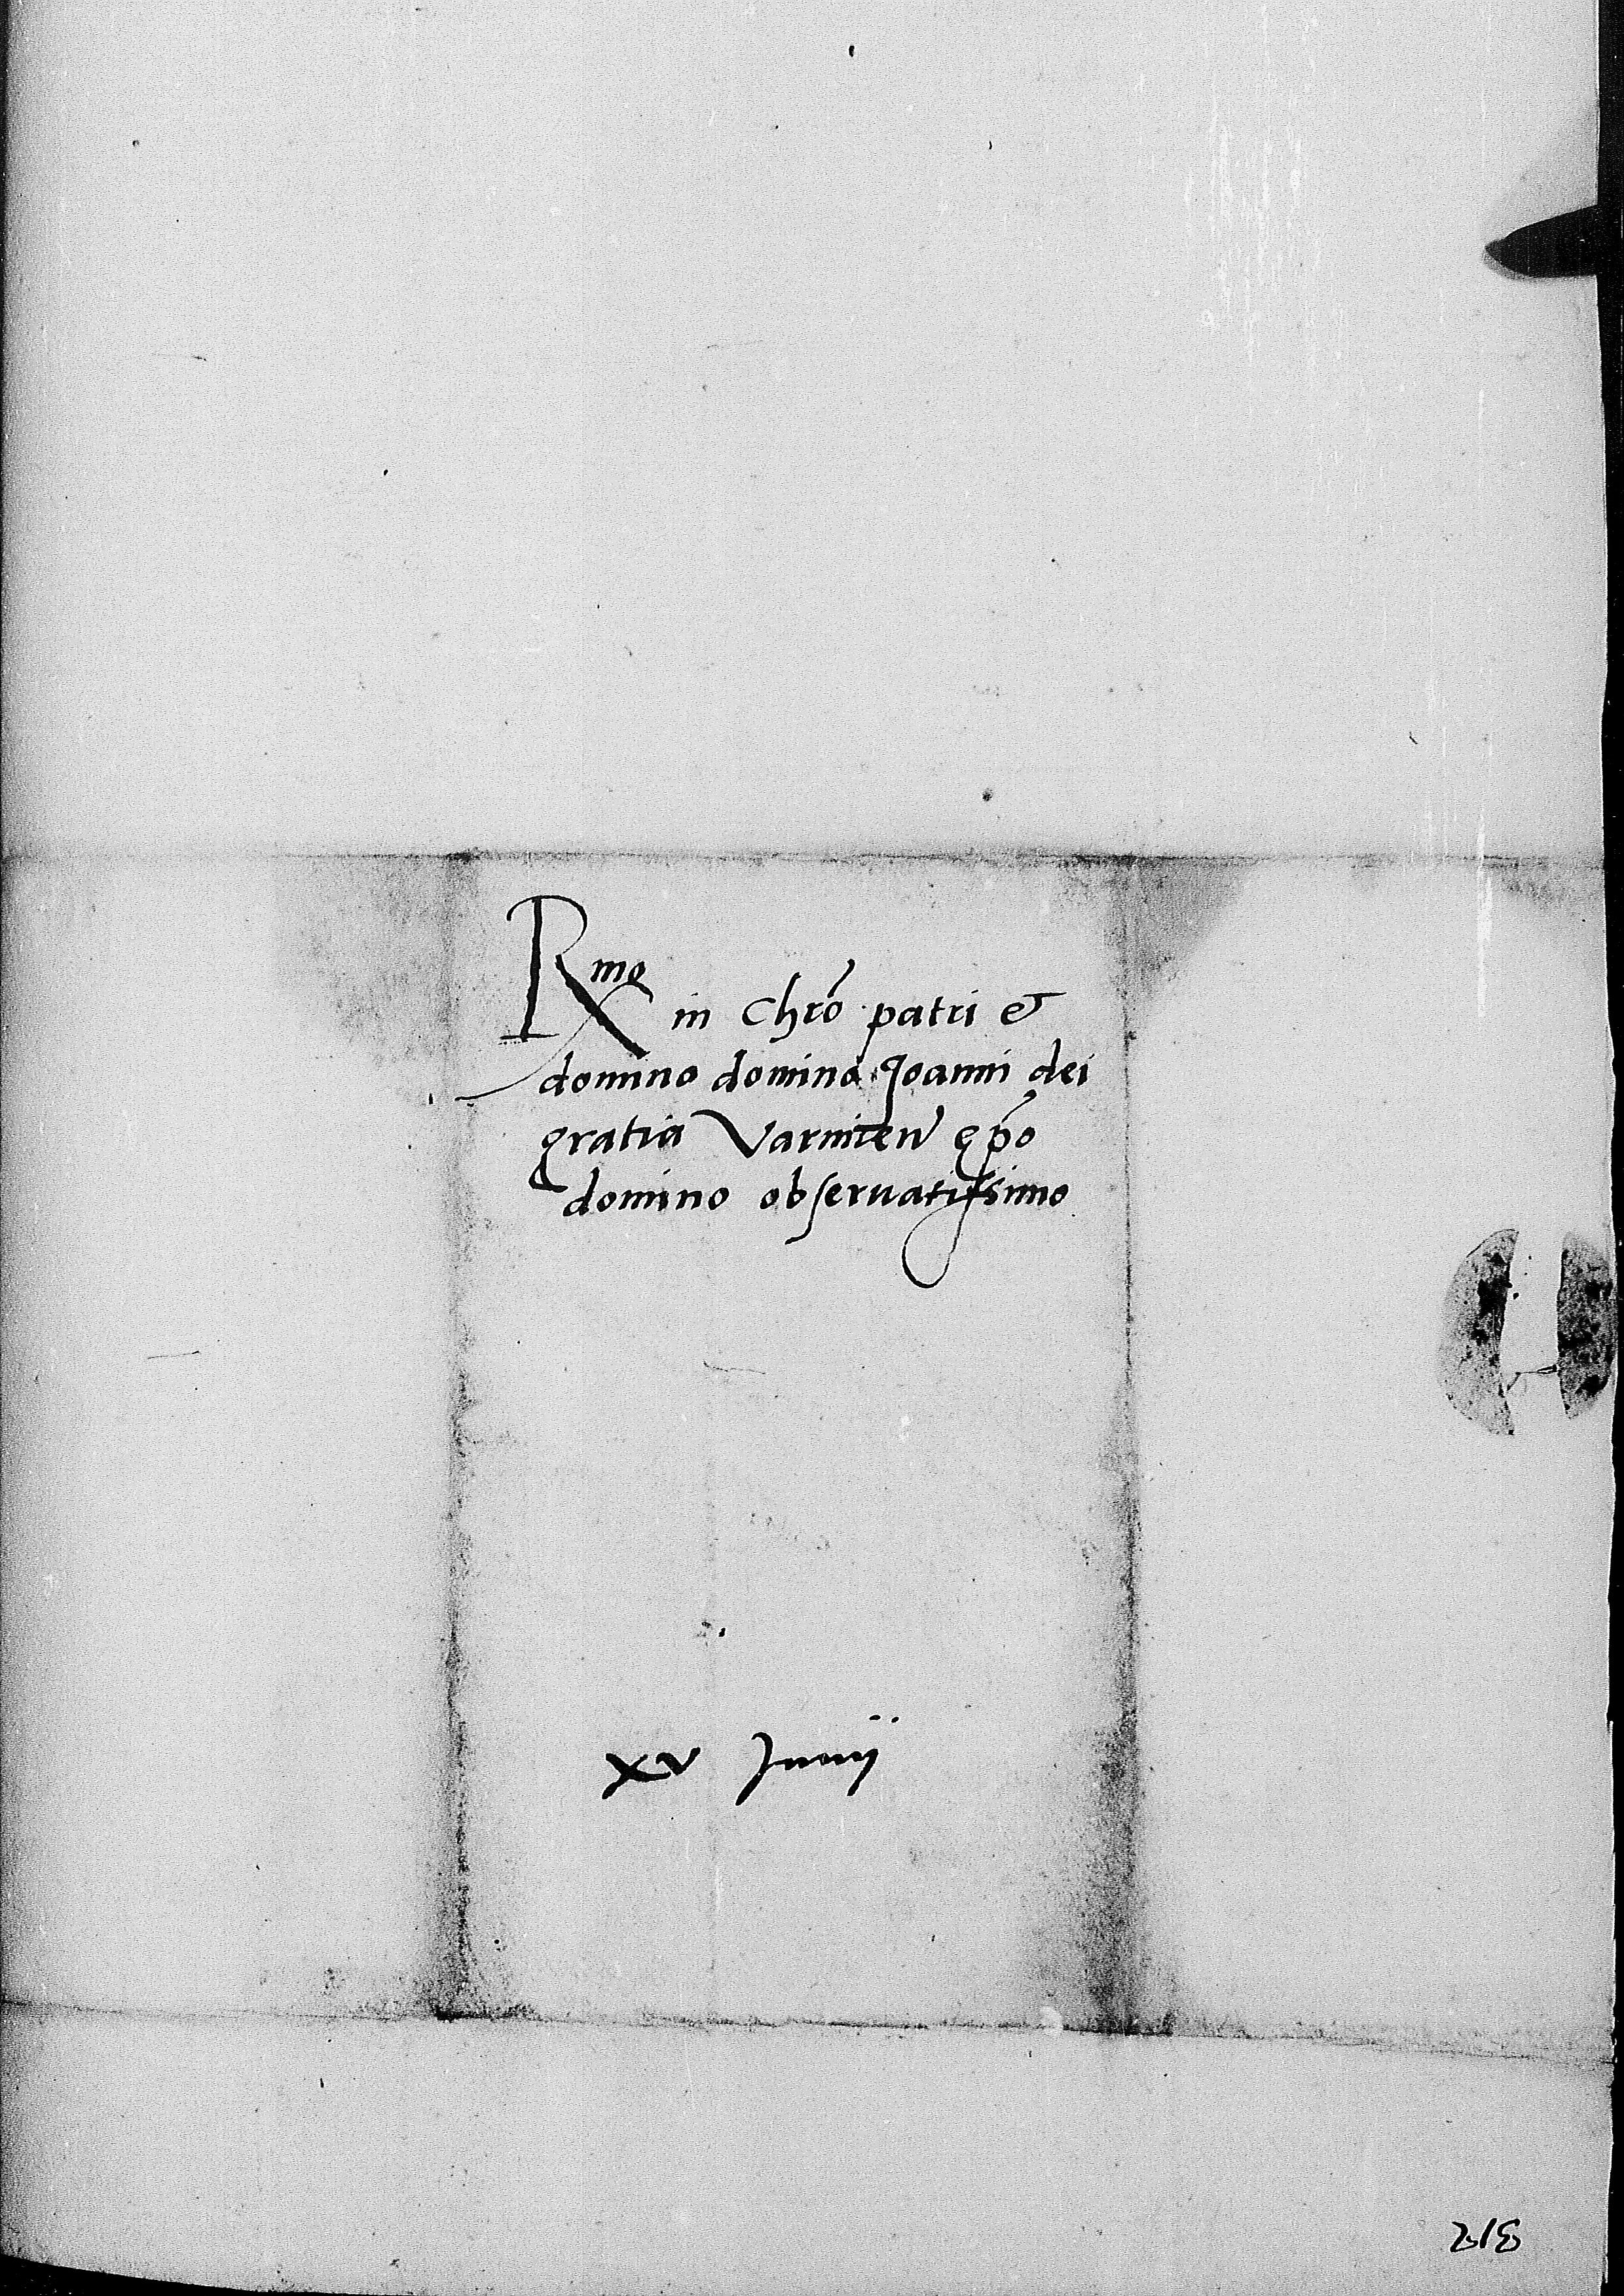 Rmo in Chrō patri &
domino domino Joanni dei
gratia Varmien̄ ep̄o
domino obseruatissimo
xv Junij